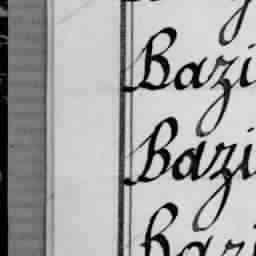 Bazi
Bazi
Bazi